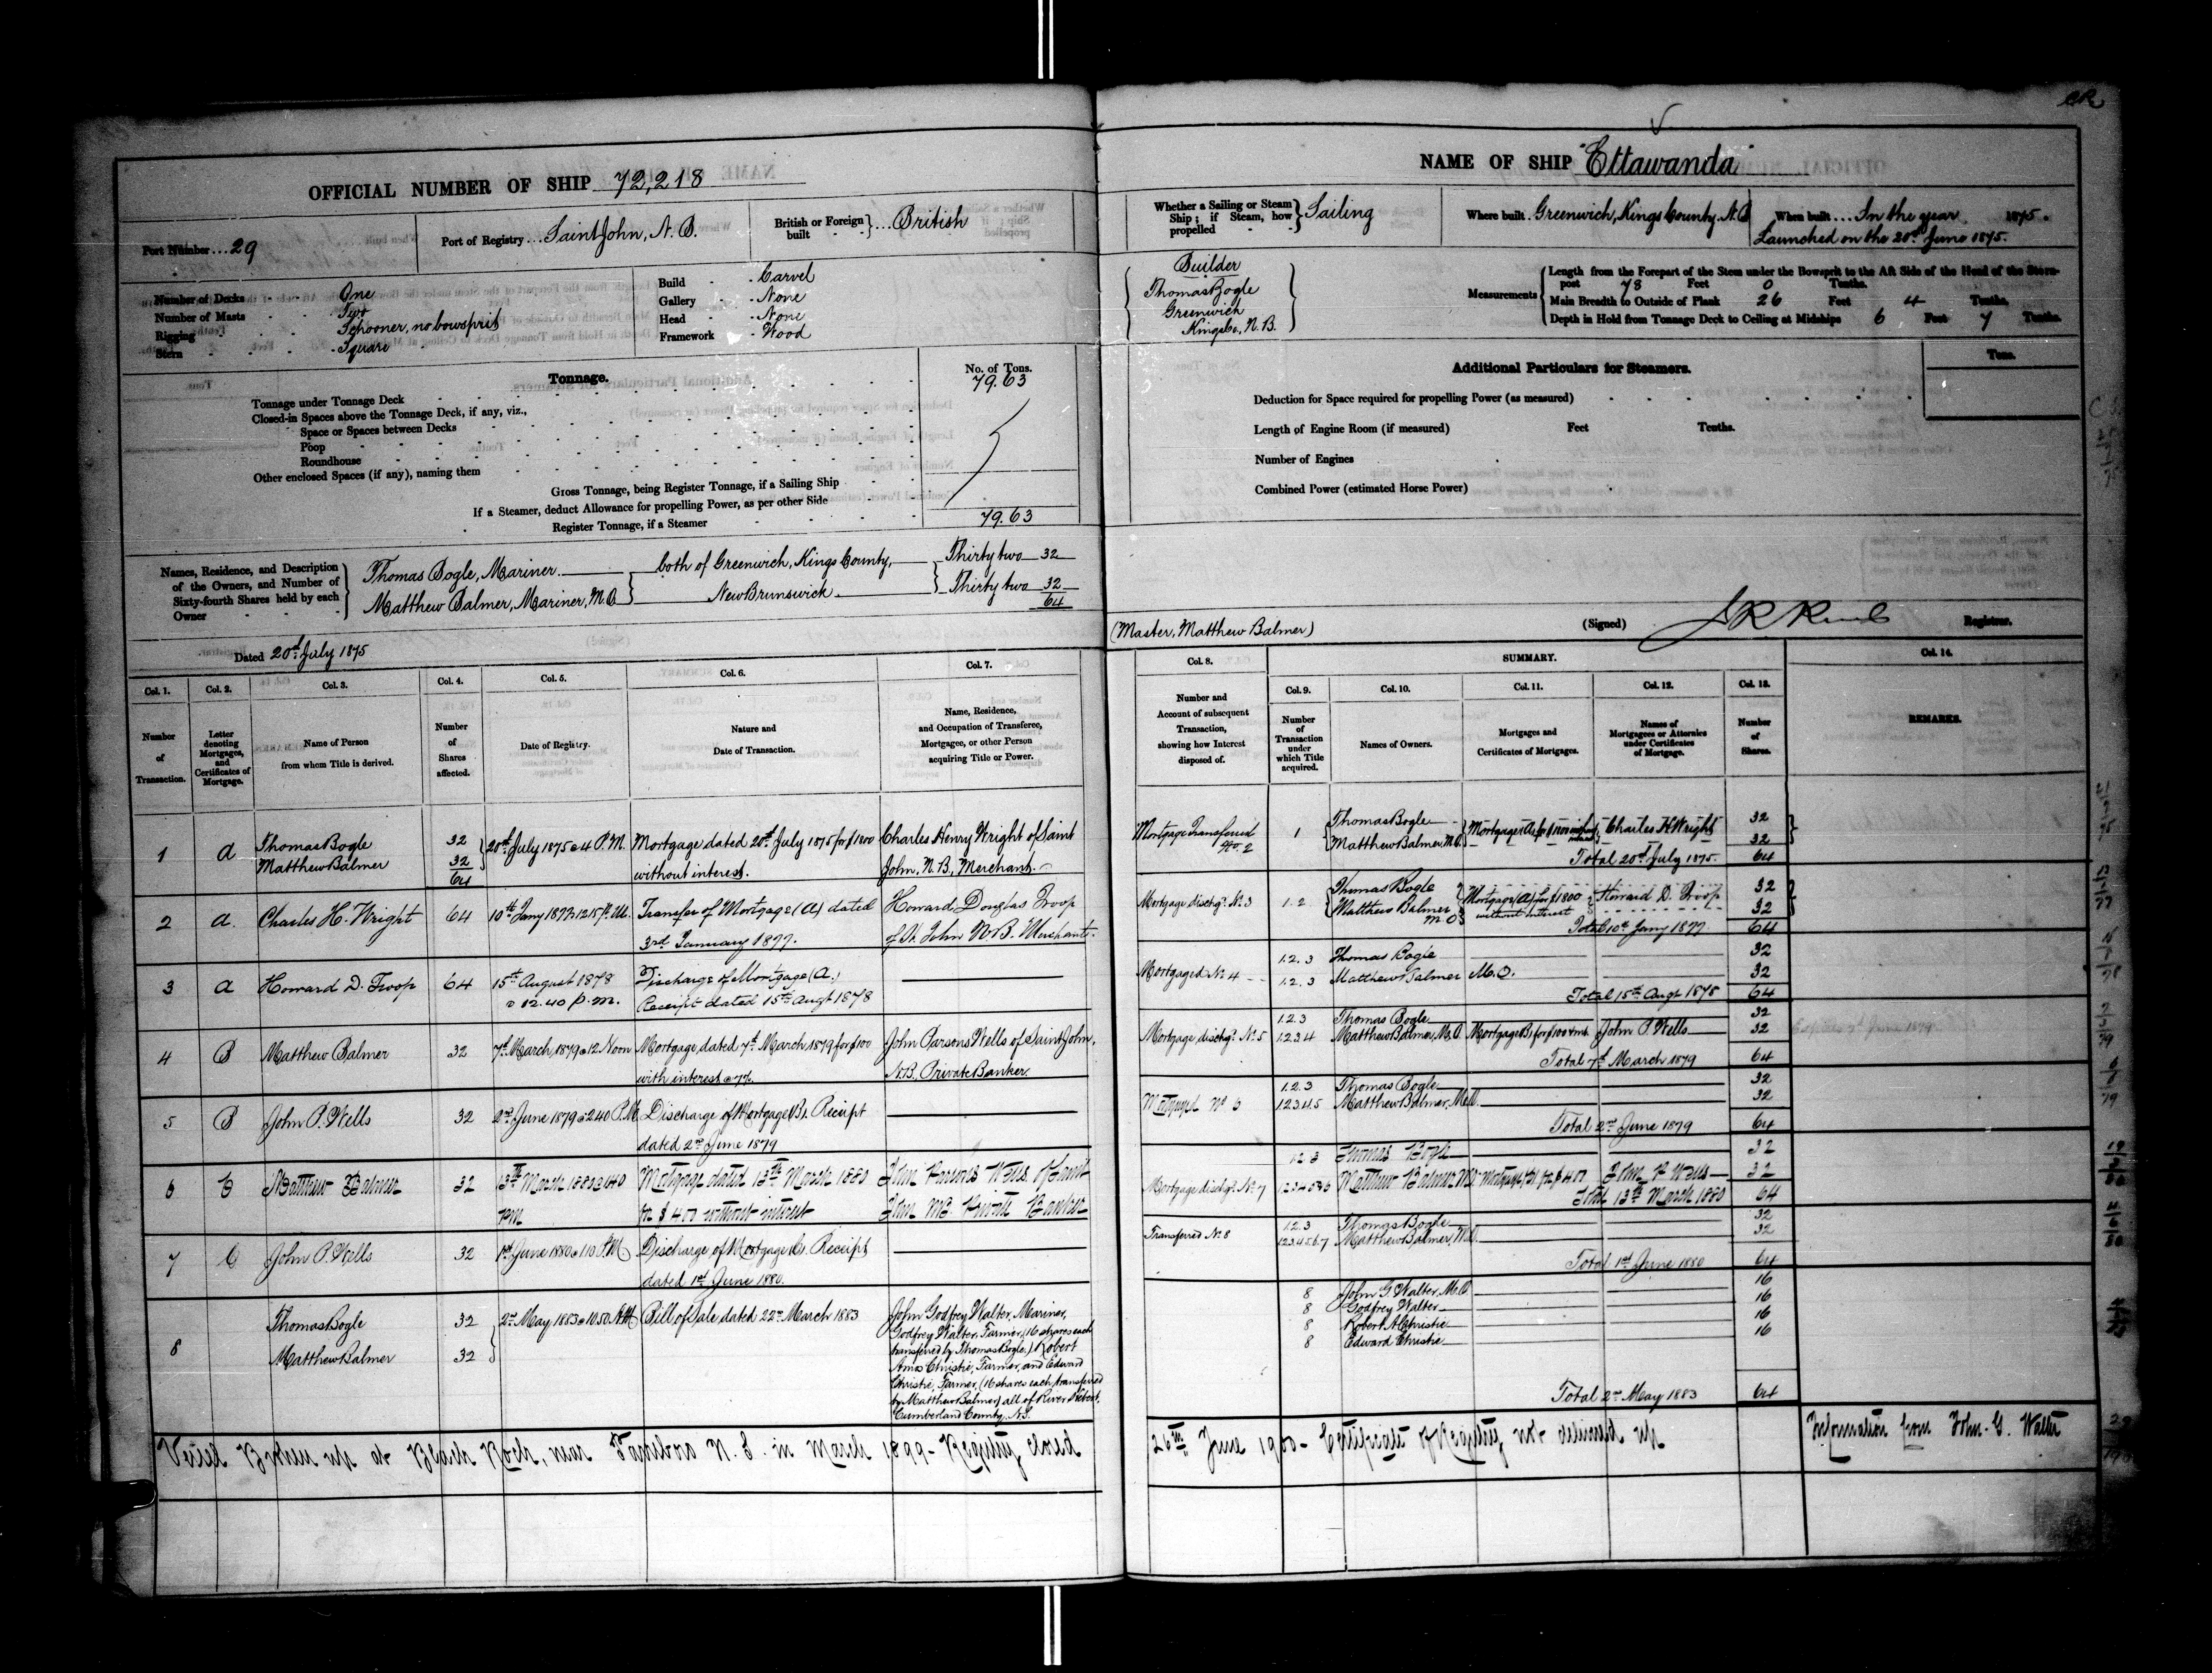 OFFICIAL NUMBER OF SHIP 72,218
Port Number ... 29
Port of Registry ... Saint John, N.B.
British or Foreign built } ... British
Number of Decks One
Number of Masts Two
Rigging Schooner, no bowsprit
Stern Square
Build Carvel
Gallery None
Head None
Framework Wood
Tonnage.
No. of Tons.
Tonnage under Tonnage Deck 79.63
Closed-in Spaces above the Tonnage Deck, if any, viz.,
Space or Spaces between Decks
Poop
Roundhouse
Other enclosed Spaces (if any), naming them
Gross Tonnage, being Register Tonnage, if a Sailing Ship
If a Steamer, deduct Allowance for propelling Power, as per other Side
Register Tonnage, if a Steamer 79.63
Names, Residence, and Description of the Owners, and Number of Sixty-fourth Shares held by each Owner
Thomas Bogle, Mariner. both of Greenwich, Kings County, Thirty two 32
Matthew Balmer, Mariner, M.O New Brunswick Thirty two 32
64
Dated 20th July 1875
Col. 1. Col. 2. Col. 3. Col. 4. Col. 5. Col. 6. Col. 7.
Number of Transaction.
Letter denoting Mortgages, and Certificates of Mortgage.
Name of Person from whom Title is derived.
Number of Shares affected.
Date of Registry.
Nature and Date of Transaction.
Name, Residence, and Occupation of Transferee, Mortgagee, or other Person acquiring Title or Power.
1 A Thomas Bogle 32 20th July 1875 @ 4 P.M. Mortgage dated 20th July 1875 for $1800 Charles Henry Wright of Saint
Matthew Balmer 32 without interest. John, N.B., Merchant.
64
2 A. Charles H. Wright 64 10th Jany 1877 12.15 P.M. Transfer of Mortgage (A) dated Howard Douglas Troop
3rd January 1877. of St. John N.B. Merchant.
3 A Howard D. Troop 64 15th August 1878 Discharge of Mortgage (A.)
@ 12.40 p.m. Receipt dated 15th Augt 1878
4 B Matthew Balmer 32 7th March 1879 @ 12 Noon Mortgage dated 7th March 1879 for $100 John Parsons Wells of Saint John,
with interest @ 7%. N.B., Private Banker.
5 B John P. Wells 32 2nd June 1879 @ 2.40 P.M. Discharge of Mortgage B. Receipt
dated 2nd June 1879
6 C Matthew Balmer 32 13th March 1880 @ 1.40 Mortgage dated 13th March 1880 John Parsons Wells of Saint
PM for $400 without interest John NB Private Banker
7 C John P. Wells 32 1st June 1880 @ 1.10 P.M. Discharge of Mortgage C. Receipt
dated 1st June 1880.
8 Thomas Bogle 32 2nd May 1883 @ 10.50 A.M. Bill of Sale dated 22nd March 1883 John Godfrey Walter, Mariner,
Godfrey Walter, Farmer, (16 shares each
transferred by Thomas Bogle.) Robert
Matthew Balmer 32 Amos Christie, Farmer, and Edward
Christie, Farmer, (16 shares each transferred
by Matthew Balmer) all of River Hebert,
Cumberland County, N.S.
Vessel Broken up at Black Rock, near Parrsboro N.S. in March 1899 - Registry closed
NAME OF SHIP "Ettawanda"
Whether a Sailing or Steam Ship; if Steam, how propelled } Sailing
Where built . Greenwich, Kings County, N.B
When built ... In the year 1875.
Launched on the 20th June 1875.
Builder
Thomas Bogle
Greenwich
Kings Co., N.B.
Measurements
Length from the Forepart of the Stem under the Bowsprit to the Aft Side of the Head of the Stern-
post 78 Feet 0 Tenths.
Main Breadth to Outside of Plank 26 Feet 4 Tenths.
Depth in Hold from Tonnage Deck to Ceiling at Midships 6 Feet 7 Tenths.
Additional Particulars for Steamers.
Tons.
Deduction for Space required for propelling Power (as measured)
Length of Engine Room (if measured) Feet Tenths.
Number of Engines
Combined Power (estimated Horse Power)
(Master, Matthew Balmer)
(Signed) Registrar.
Col. 8. SUMMARY. Col. 14.
Col. 9. Col. 10. Col. 11. Col. 12. Col. 13.
Number and Account of subsequent Transaction, showing how Interest disposed of.
Number of Transaction under which Title acquired.
Names of Owners.
Mortgages and Certificates of Mortgages.
Names of Mortgagees or Attornies under Certificates of Mortgage.
Number of Shares.
REMARKS.
Mortgage Transferred No. 2 1 Thomas Bogle Mortgage (A) for $1800 Charles H Wright 32
Matthew Balmer, M.O. 32
Total 20th July 1875. 64
Mortgage dischgd. No. 3 1.2 Thomas Bogle Mortgage (A) for $1800 Howard D. Troop 32
Matthew Balmer M.O without interest 32
Total 10th Jany 1877 64
Mortgaged No. 4 1.2.3 Thomas Bogle 32
1.2.3 Matthew Balmer M.O. 32
Total 15th Augt 1878 64
1.2.3 Thomas Bogle 32
Mortgage dischgd. No. 5 1.2.3.4 Matthew Balmer, M.O. Mortgage B, for $100 & int. John P. Wells 32
Total 7th March 1879 64
1.2.3 Thomas Bogle 32
Mortgaged No 6 1.2.3.4.5 Matthew Balmer, M.O. 32
Total 2nd June 1879 64
1.2.3 Thomas Bogle 32
Mortgage dischgd. No. 7 1.2.3.4.5.6 Matthew Balmer MO Mortgage C for $400 John P Wells 32
Total 13th March 1880 64
1.2.3 Thomas Bogle 32
Transferred No. 8 1.2.3.4.5.6.7 Matthew Balmer, M.O. 32
Total 1st June 1880 64
8 John G. Walter, M.O. 16
8 Godfrey Walter 16
8 Robert A. Christie 16
8 Edward Christie 16
Total 2nd May 1883 64
26th June 1900 - Certificate of Registry not delivered up
Information from John. G. Walter